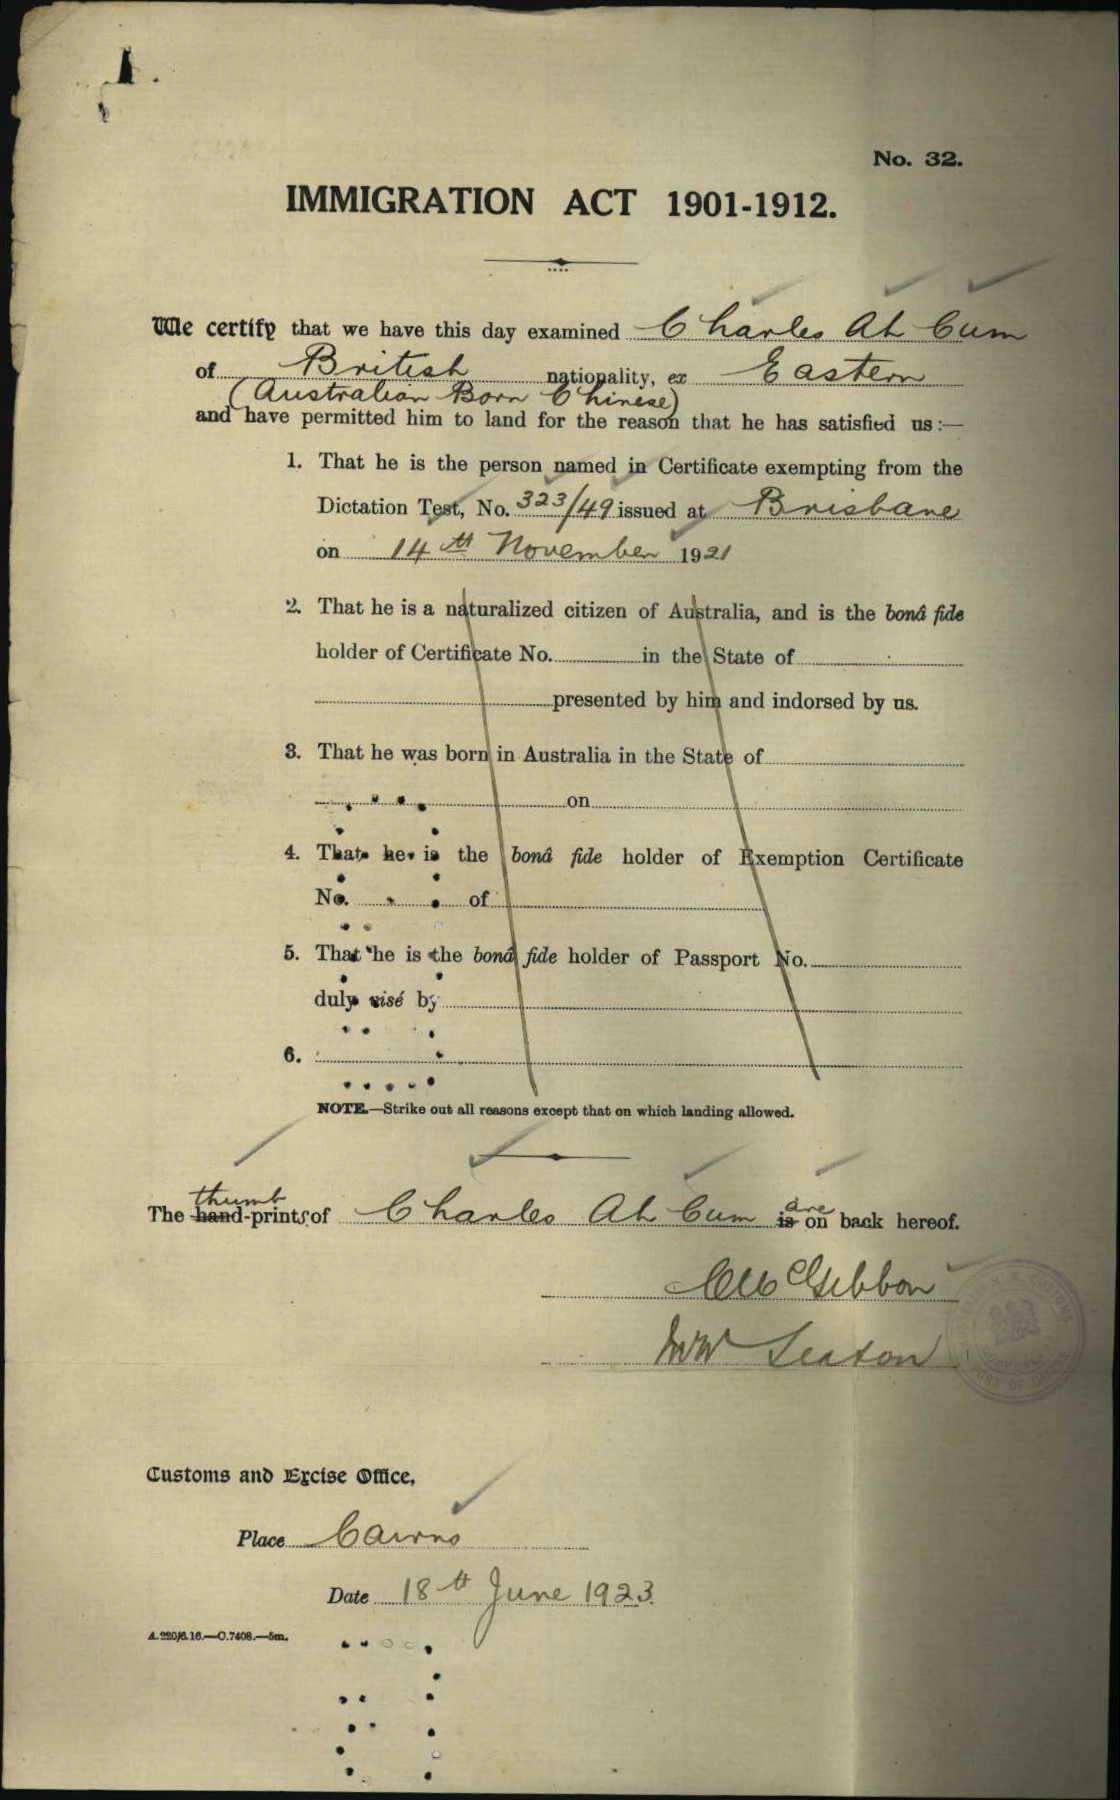 No. 32.
IMMIGRATION ACT 1901-1912.
We certify that we have this day examined Charles Ah Cum
of British nationality, ex Eastern
(Australian Born Chinese)
and have permitted him to land for the reason that he has satisfied us:—
1. That he is the person named in Certificate exempting from the
Dictation Test, No. 323/49 issued at Brisbane
on 14th November 1921
2. That he is a naturalized citizen of Australia, and is the bonâ fide
holder of Certificate No. in the State of
presented by him and indorsed by us.
3. That he was born in Australia in the State of
on
4. That he is the bonâ fide holder of Exemption Certificate
No. of
5. That he is the bonâ fide holder of Passport No.
duly visé by
6.
NOTE.—Strike out all reasons except that on which landing allowed.
thumb are
The hand-prints of Charles Ah Cum is on back hereof.
McGibbon
Seaton
Customs and Excise Office,
Place Cairns
Date 18th June 1923.
A.220/6.16.—C.7408.—5m.